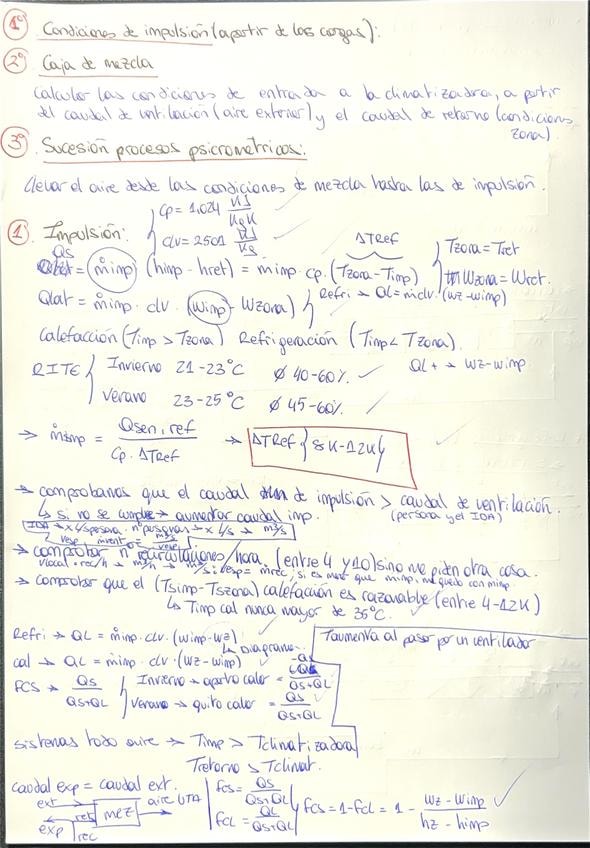 1º Condiciones de impulsión (a partir de las cargas):
2º Caja de mezcla
Calcular las condiciones de entrada a la climatizadora, a partir
del caudal de ventilación (aire exterior) y el caudal de retorno (condiciones
zona).
3º Sucesión procesos psicrometricos:
Llevar el aire desde las condiciones de mezcla hasta las de impulsión.
1 Impulsión: { Cp = 1,024 KJ/KgK
clv = 2501 KJ/Kg
ΔTRef
Qs = ṁimp (himp - hret) = ṁimp · cp · (Tzona - Timp) { Tzona = Tret
Wzona = Wret.
Qlat = ṁimp · clv · (Wimp - Wzona) { Refri → QL = ṁ·clv·(wz - wimp)
Calefacción (Timp > Tzona) Refrigeración (Timp < Tzona).
RITE { Invierno 21-23°C Ø 40-60%. QL+ → wz - wimp
Verano 23-25°C Ø 45-60%.
→ ṁimp = Qsen,ref / Cp · ΔTRef → ΔTRef { 8K-12K }
→ comprobamos que el caudal de impulsión > caudal de ventilación.
↳ si no se cumple → aumentar caudal imp. (persona y el IDA)
→ comprobar nº recirculaciones/hora. (entre 4 y 10) sino me piden otra cosa.
Vlocal · rec/h → m³/h → m³/s
→ comprobar que el (Tsimp - Tszona) calefacción es razonable (entre 4-12K)
↳ Timp cal nunca mayor de 35°C.
Refri → QL = ṁimp · clv · (wimp - wz)
↳ Diagrama
T aumenta al pasar por un ventilador
cal → QL = ṁimp · clv · (wz - wimp)
FCS → Qs / Qs+QL { Invierno → aporto calor =
Verano → quito calor = Qs / Qs+QL
sistemas todo aire → Timp > Tclimatizadora
Tretorno > Tclimat.
caudal exp = caudal ext.
ext → mez → aire UTA
ret
exp rec
fcs = Qs / Qs+QL
fcl = QL / Qs+QL } fcs = 1 - fcl = 1 - wz - wimp / hz - himp